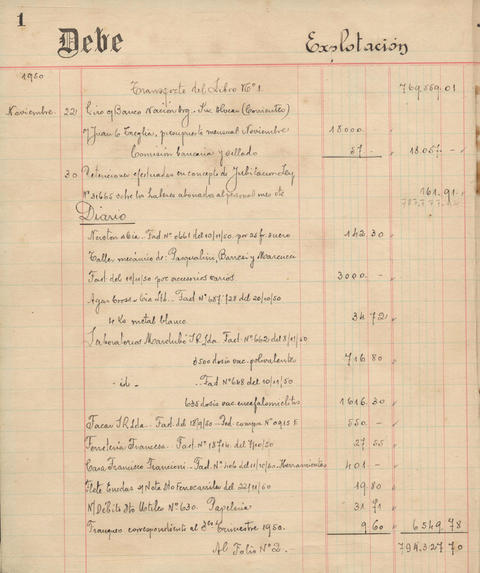 1
Debe Explotación
1950
Transporte del Libro Nº 1. 769.559.01
Noviembre. 22 Giro c/ Banco Nación Arg. - Suc. (Corrientes)
p/ Juan C. presupuesto mensual Noviembre 18000.
Comisión bancaria y sellado 57.- 18.057.-
30 Retenciones efectuadas en concepto de Jubilación Ley
Nº 31665 sobre los haberes abonados al personal mes cte 161.91
Diario
787.777.
& Cía.- Fact Nº 0661 del 10/11/50 por 25 f. suero 142.30
Taller mecánico de: Pasqualini, y Marcucci
Fact. del 10/11/50 por accesorios varios 3000.-
Agar Cross & Cía Ltd. - Fact Nº 687.728 del 20/10/50
4 Ks metal blanco 34.72
Laboratorios S.R.Ltda. Fact. Nº 662 del 8/11/50
3500 dosis vac. polivalente 716.80
- id - Fact Nº 648 del 10/11/50
635 dosis vac. encefalomielitis 1616.30
S.R.Ltda.- Fact. del 18/9/50 - Ped. compra Nº 0915 E 550.-
Ferretería Francesa. Fact. Nº 18714 del 7/10/50 27.55
Casa Francisco Francioni - Fact. Nº 406 del 11/10/50. Herramientas 401.-
Flete s/ Nota Dto Ferrocarriles del 22/11/50 19.80
N/ Débito Dto Utiles Nº 630. Papelería 31.71
Franqueo correspondiente al 3er Trimestre 1950. 9.60 6549.78
Al Folio Nº 2. 794.327.70